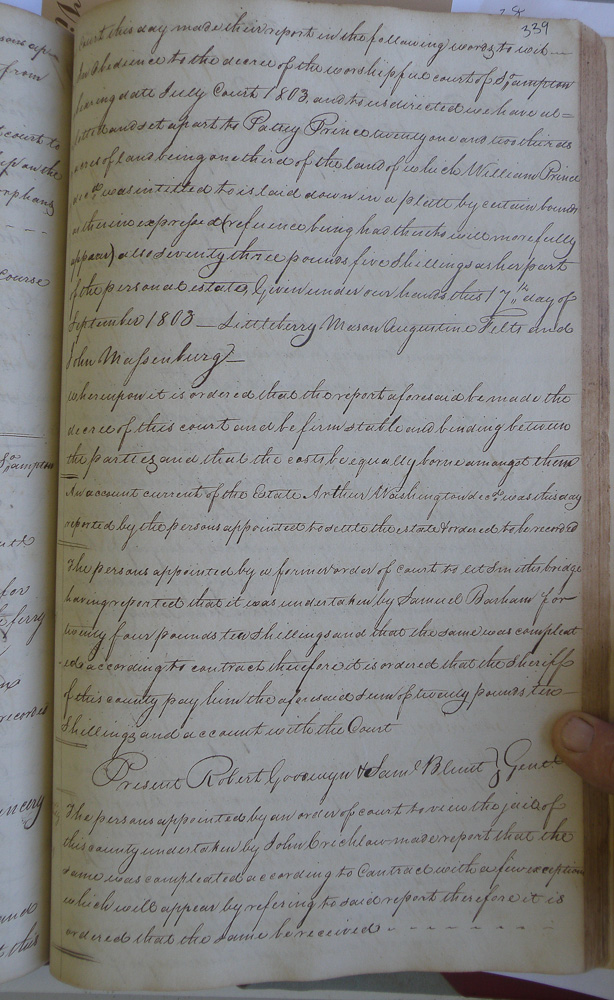 339
Court this day made their report in the following words to wit—
In obedience to the decree of the worshipful court of So.ampton
bearing date July Court 1803, and to us directed we have al=
lotted and set apart to Patsey Prince twenty one and two thirds
acres of land being one third of the land of which William Prince
decd. was intitled to is laid down in a platt by certain bounds
therein expressed (refuence being had thereto will more fully
appear) also seventy three pounds five Shillings as her part
of the personal estate, Given under our hands this 17th day of
September 1803 — Littleberry Mason Augustine Felts and
John Massenburg—
Whereupon it is ordered that the report aforesaid be made the
decree of this court and be firm stable and binding between
the parties, and that the costs be equally borne amongst them
An account current of the Estate Arthur Washington decd. was this day
reported by the persons appointed to settle the estate & ordered to be recorded
The persons appointed by a former order of court to let Smiths bridge
having reported that it was undertaken by Samuel Barham for
twenty four pounds ten Shillings and that the same was compleat
-ed according to contract therefore it is ordered that the Sheriff
of this county pay him the aforesaid sum of twenty pounds ten
Shillings and account with the Court
Present Robert Goodwyn & Saml Blunt } Gent.
The persons appointed by an order of court to view the jail of
this county undertaken by John Crichlow made report that the
same was compleated according to Contract with a few exception
which will appear by refering to said report therefore it is
ordered that the same be received - - - - - - - - -
from
court to
orphans
course
So.ampton
for
ferry
recorded
and
this